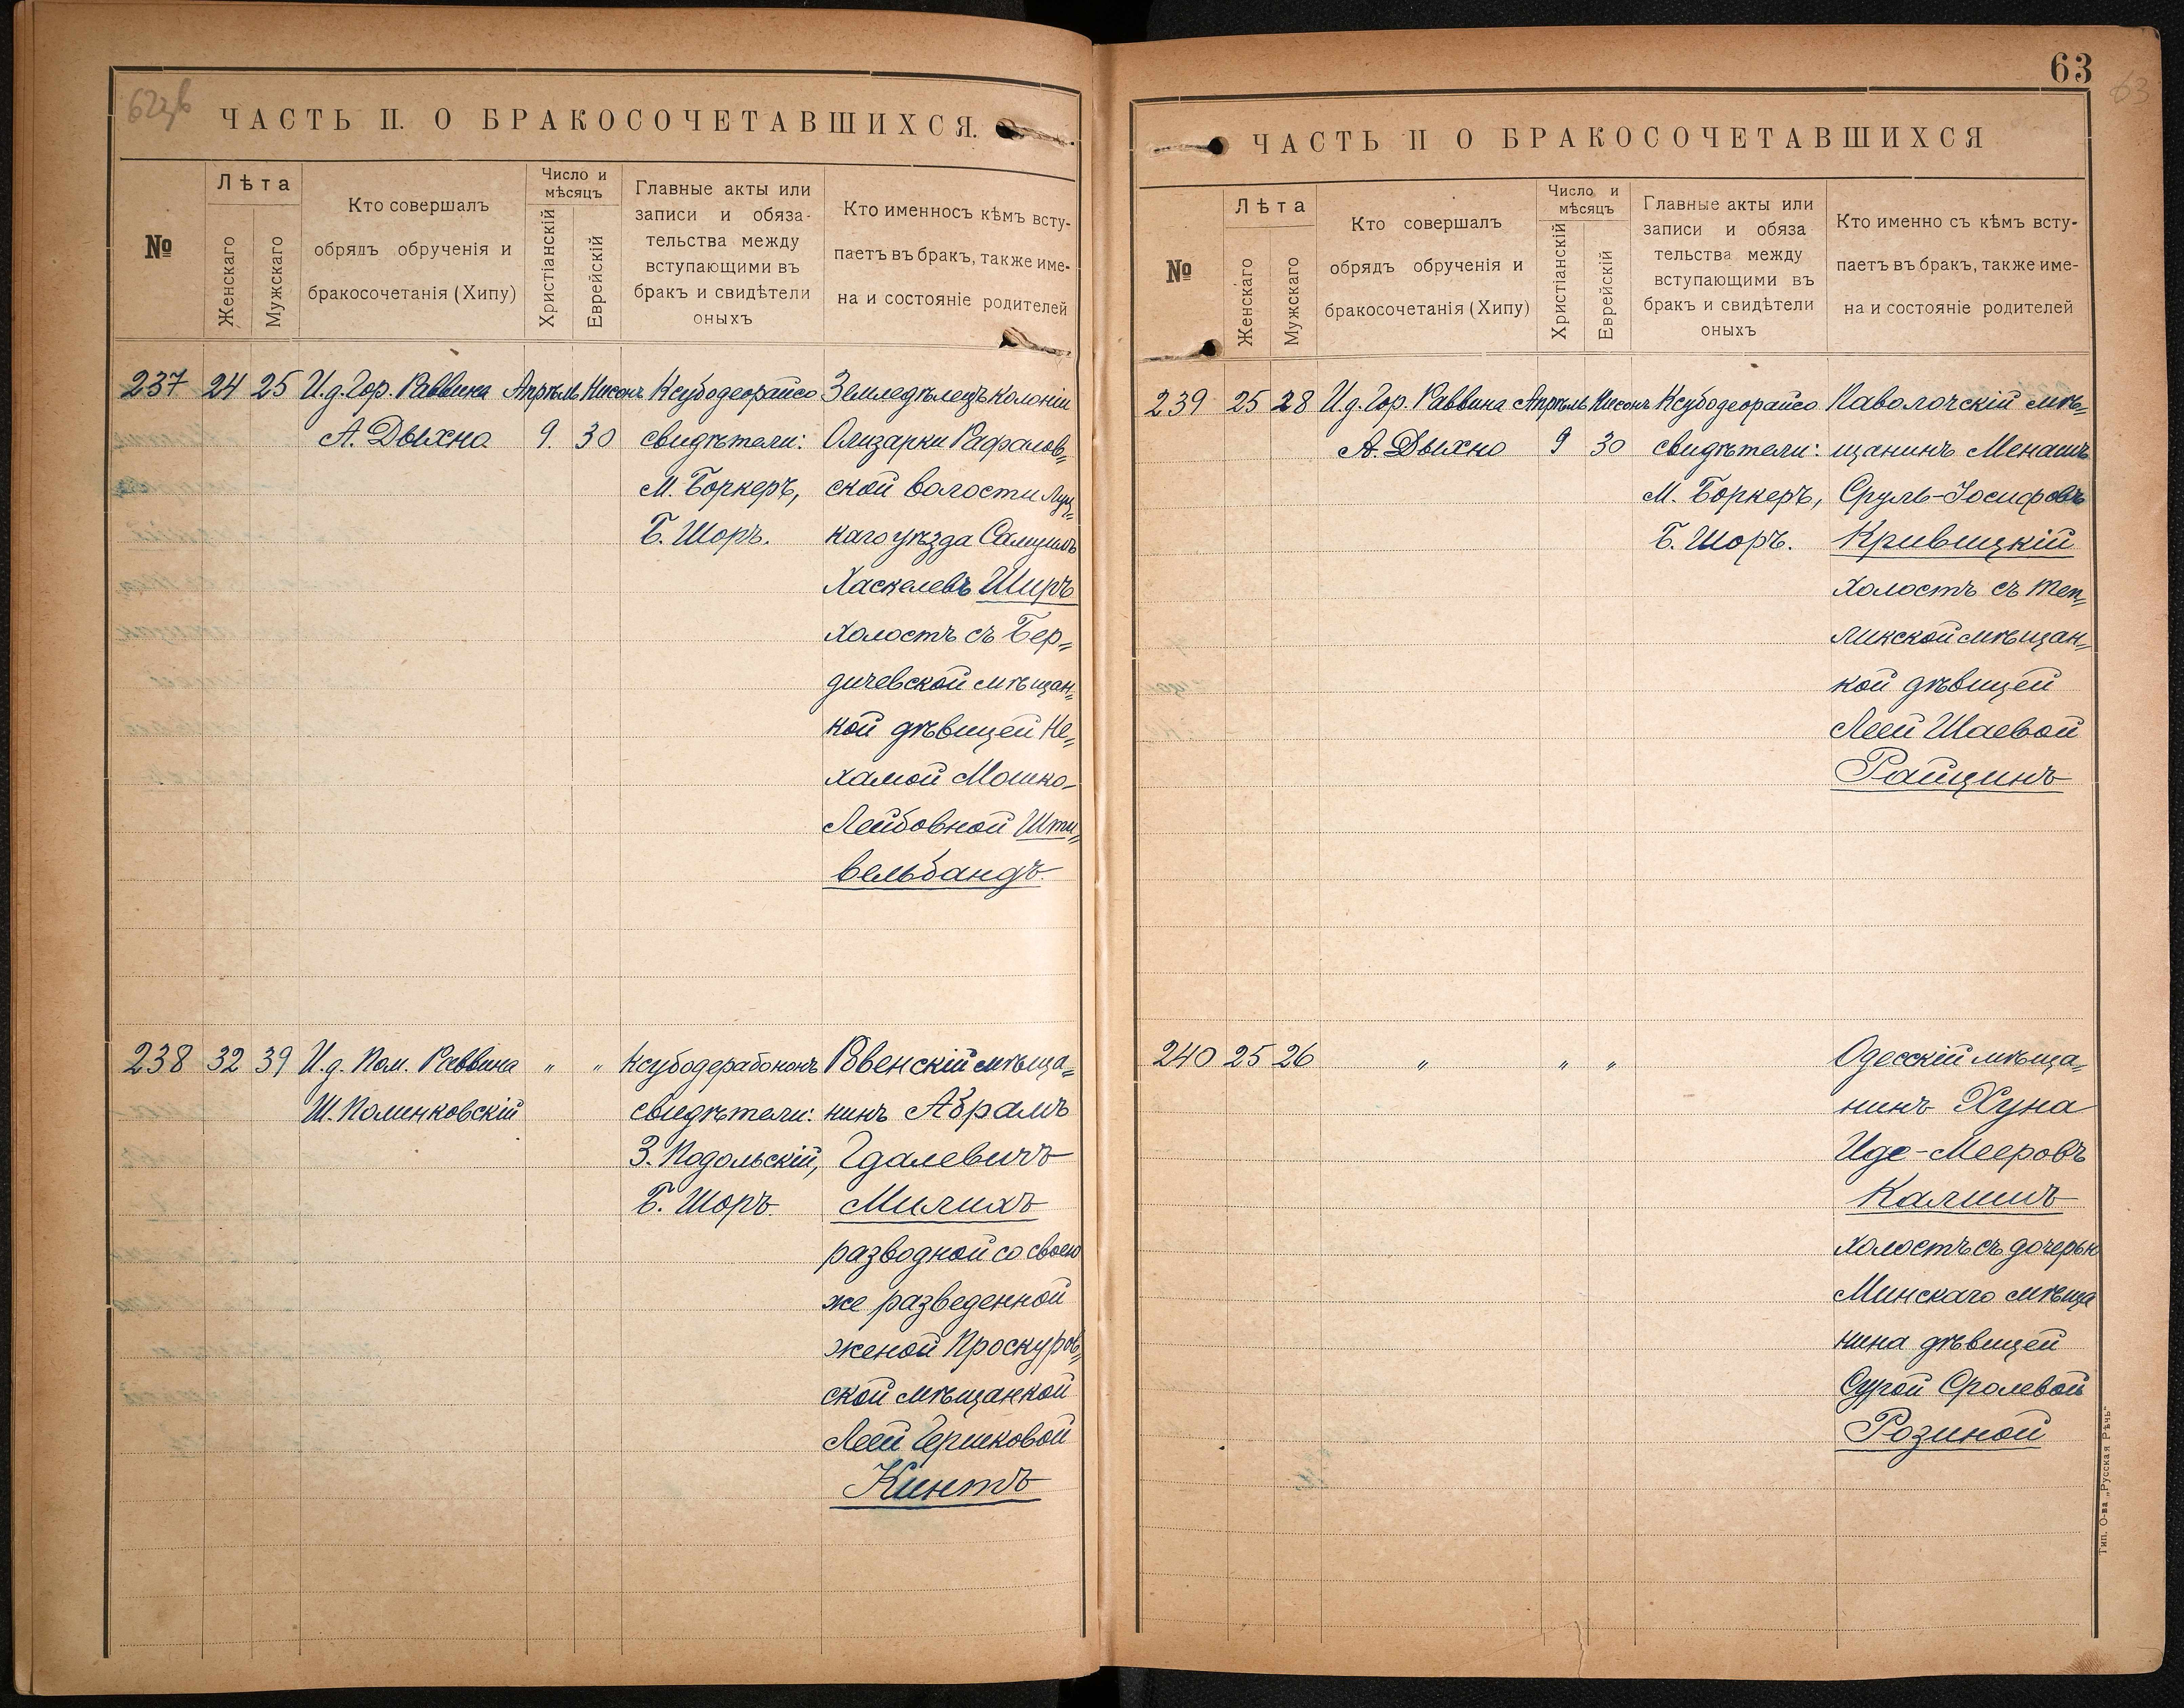 ЧАСТЬ II. О БРАКОСОЧЕТАВШИХСЯ.
№
Лѣта
Женскаго
Мужскаго
Кто совершалъ
обрядъ обрученія и
бракосочетанія (Хипу)
Число и
мѣсяцъ
Христіанскій
Еврейскій
Главные акты или
записи и обяза-
тельства между
вступающими въ
бракъ и свидѣтели
оныхъ
Кто именносъ кѣмъ всту-
паетъ въ бракъ, также име-
на и состояніе родителей
237 24 25 И.д. Гор. Раввина Апрѣль Нисонъ Ксубодеорайсо Земледѣлецъ колоніи
А. Дыхно 9. 30 свидѣтели: Олизарки Рафалов=
М. Боркеръ, ской волости Луц=
Б. Шоръ. каго уѣзда Самуилъ
Хаскелевъ Ширъ
холостъ съ Бер=
дичевской мѣщан=
кой дѣвицей Не=
хамой Мошко-
Лейбовной Шти=
вельбандъ.
238 32 39 И.д. Пом. Раввина " " Ксубодерабононъ Ровенскій мѣща=
Ш. Полинковскій свидѣтели: нинъ Абрамъ
З. Подольскій, Гдалевичъ
Б. Шоръ. Милихъ
разводной со своею
же разведенной
женой Проскуров=
ской мѣщанкой
Леей Гершковой
Кинтъ
63
ЧАСТЬ II О БРАКОСОЧЕТАВШИХСЯ
№
Лѣта
Женскаго
Мужскаго
Кто совершалъ
обрядъ обрученія и
бракосочетанія (Хипу)
Число и
мѣсяцъ
Христіанскій
Еврейскій
Главные акты или
записи и обяза
тельства между
вступающими въ
бракъ и свидѣтели
оныхъ
Кто именно съ кѣмъ всту-
паетъ въ бракъ, также име-
на и состояніе родителей
239 25 28 И.д. Гор. Раввина Апрѣль Нисонъ Ксубодеорайсо Паволочскій мѣ=
А. Дыхно 9 30 свидѣтели: щанинъ Менашъ
М. Боркеръ, Сруль-Іосифовъ
Б. Шоръ. Кривицкій
холостъ съ Теп=
ликской мѣщан=
кой дѣвицей
Леей Шаевой
Райцинъ
240 25 26 " " " Одесскій мѣща=
нинъ Хуна
Иде-Мееровъ
Калишъ
холостъ съ дочерью
Минскаго мѣща
нина дѣвицей
Сурой Сролевой
Розиной
Тип. О-ва „Русская Рѣчь"